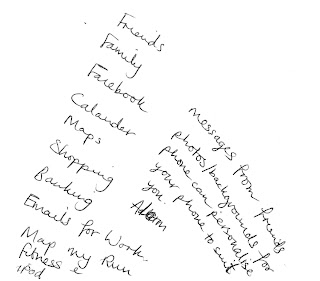 Friends
Family
Facebook
Calander
Maps
Shopping
Banking
Emails for Work.
Map my Run
fitness e
ipod
Messages from friends
photos/backgrounds for
phone can personalise
your phone to suit
you.
Alarm